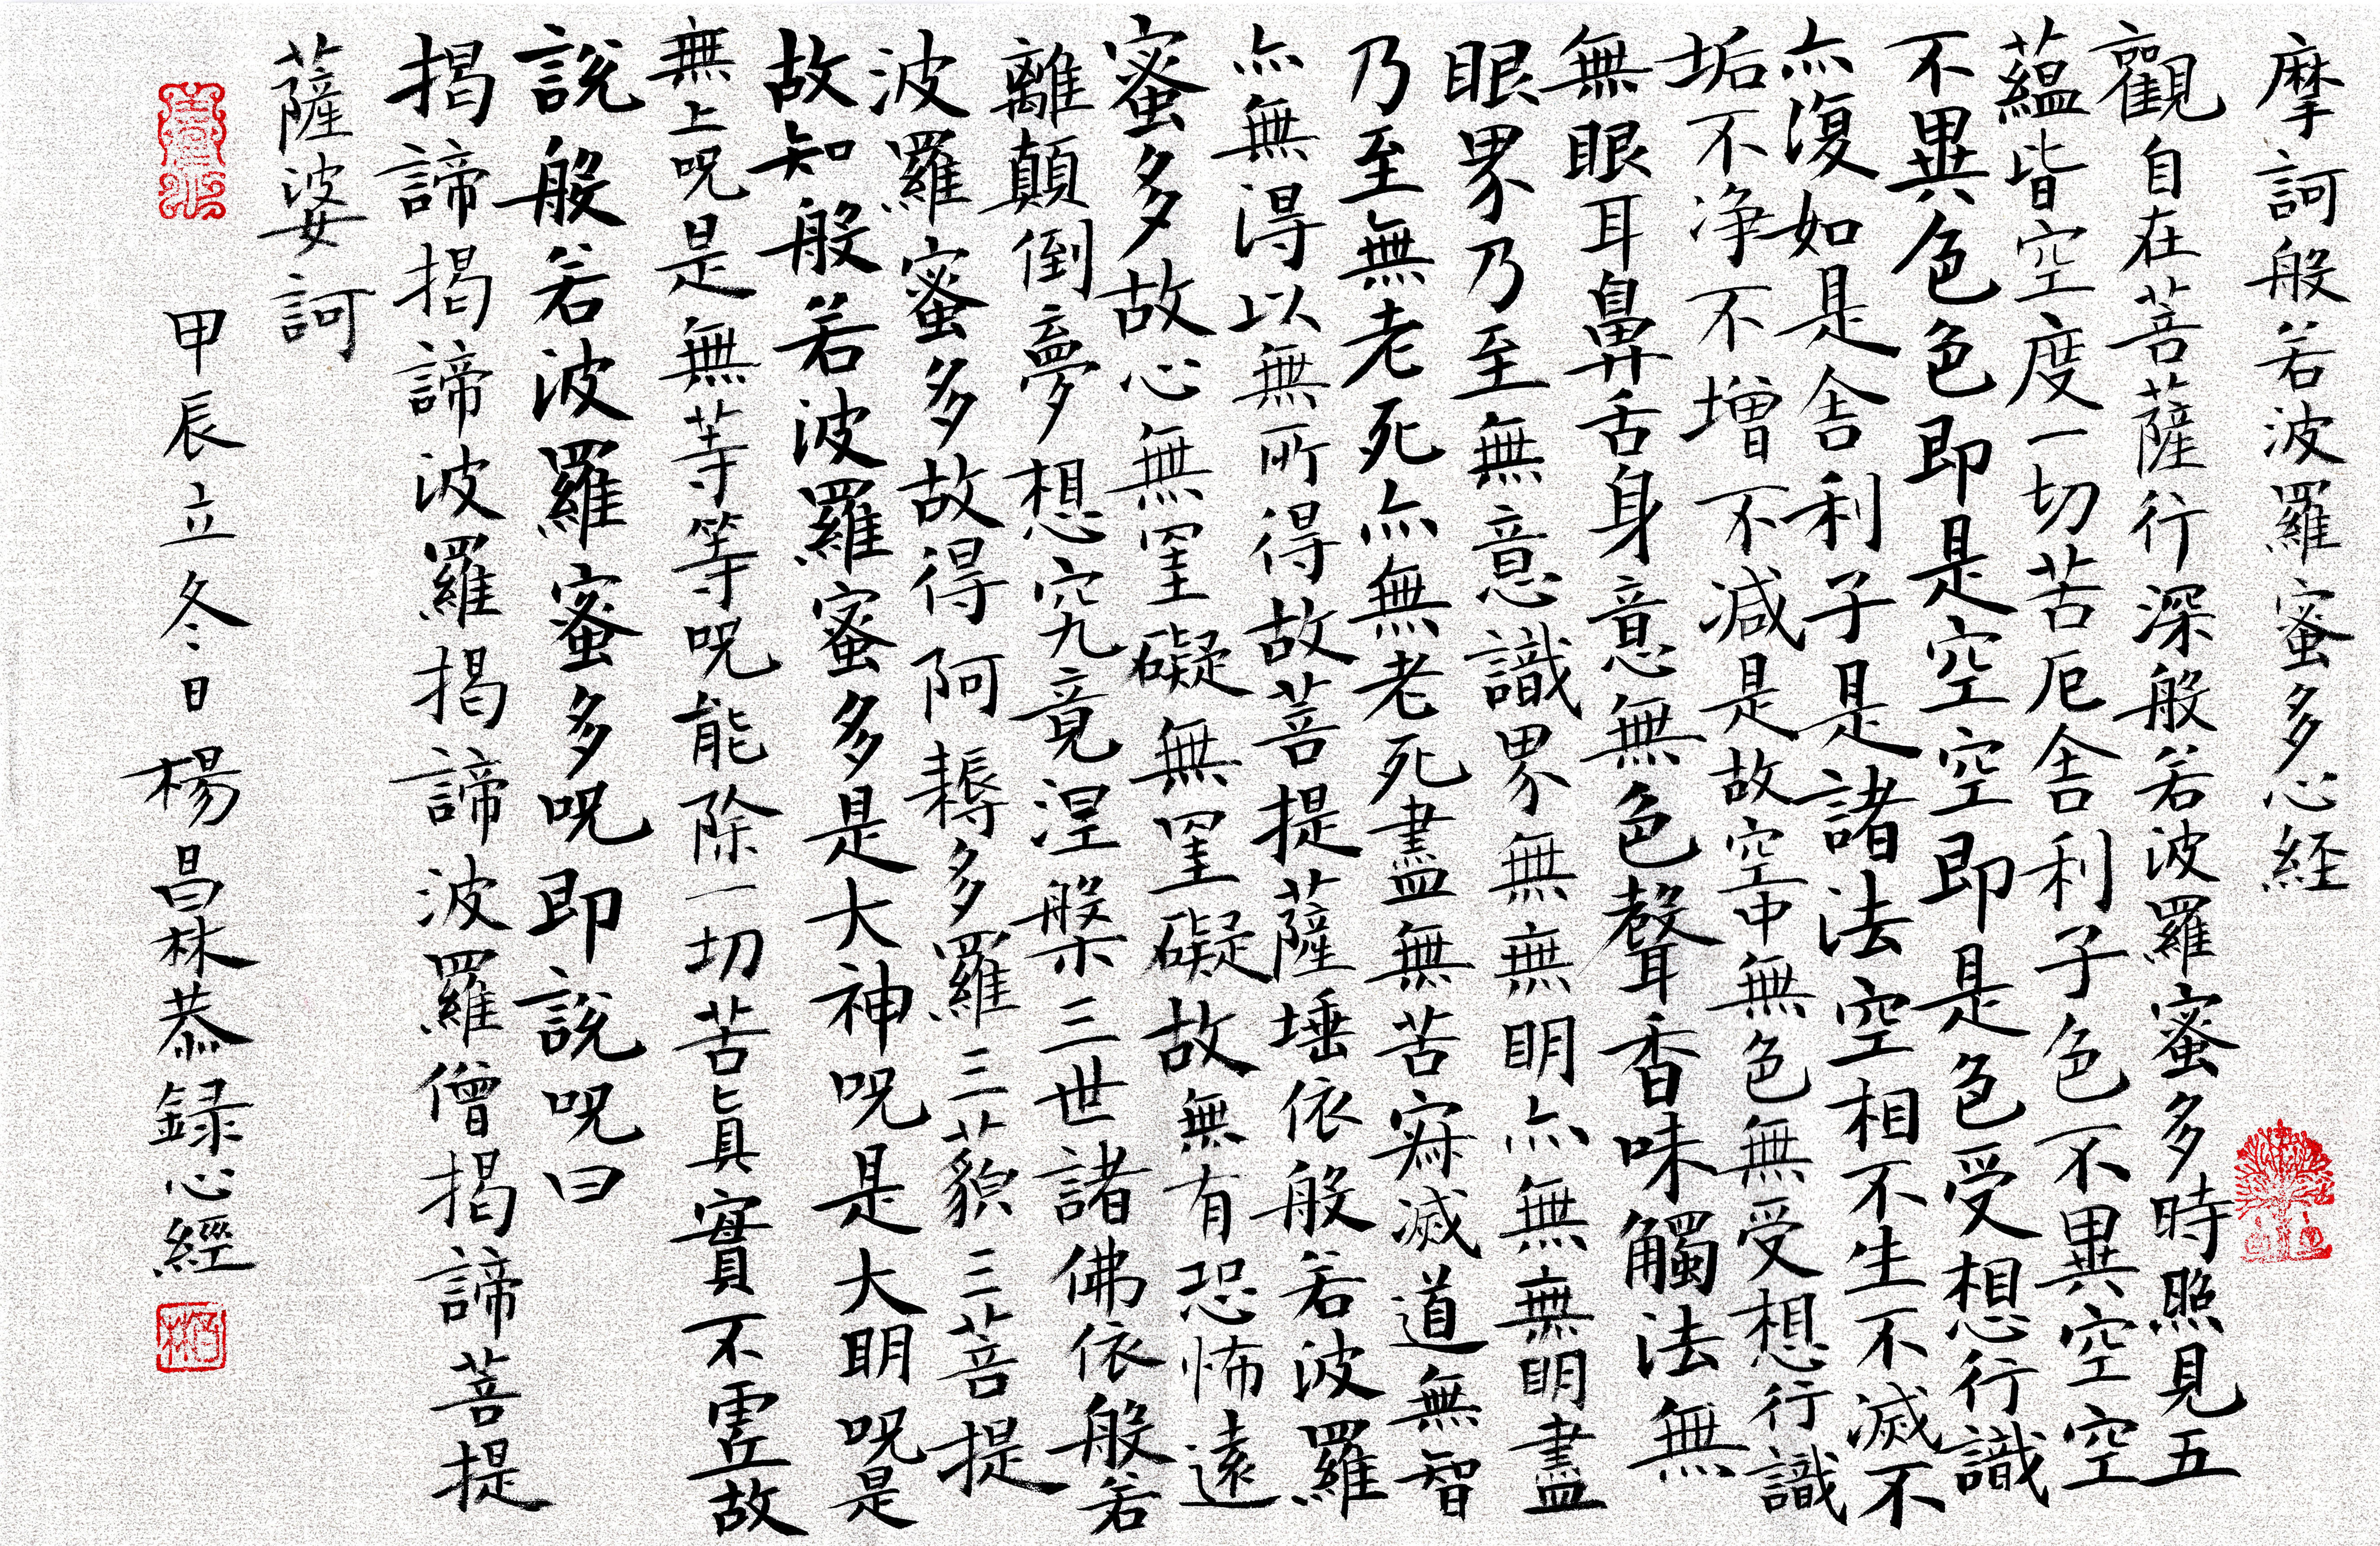 摩訶般若波羅蜜多心経
觀自在菩薩行深般若波羅蜜多時照見五
蘊皆空度一切苦厄舎利子色不異空空
不異色色即是空空即是色受想行識
亦復如是舎利子是諸法空相不生不滅不
垢不净不增不減是故空中無色無受想行識
無眼耳鼻舌身意無色聲香味觸法無
眼界乃至無意識界無無明亦無無明盡
乃至無老死亦無老死盡無苦寂滅道無智
亦無得以無所得故菩提薩埵依般若波羅
蜜多故心無罣礙無罣礙故無有恐怖遠
離顛倒夢想究竟涅槃三世諸佛依般若
波羅蜜多故得阿耨多羅三藐三菩提
故知般若波羅蜜多是大神呪是大明呪是
無上呪是無等等呪能除一切苦真實不虛故
說般若波羅蜜多呪即説呪曰
揭諦揭諦波羅揭諦波羅僧揭諦菩提
薩婆訶
甲辰立冬日楊昌林恭録心經